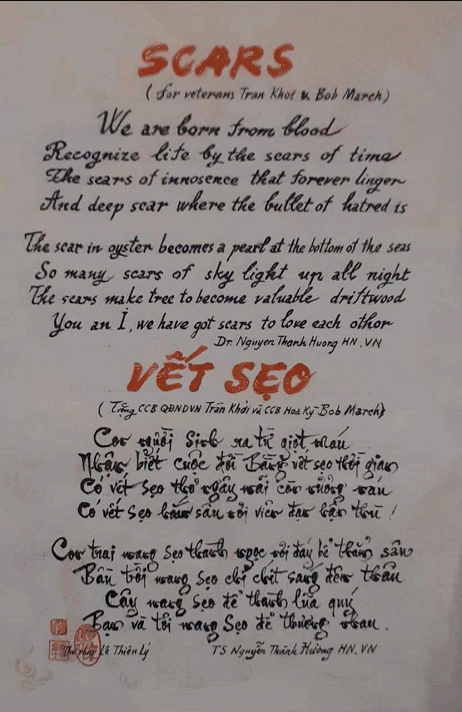 SCARS
(for veterans Tran Khoi & Bob March)
We are born from blood
Recognize life by the scars of time
The scars of innosence that forever linger
And deep scar where the bullet of hatred is
The scar in oyster becomes a pearl at the bottom of the seas
So many scars of sky light up all night
The scars make tree to become valuable driftwood
You an I, we have got scars to love each othor
Dr. Nguyen Thanh Huong HN.VN
VẾT SẸO
(Tặng CCB QĐNDVN Trần Khởi và CCB Hoa Kỳ Bob March)
Con người sinh ra từ giọt máu
Nhận biết cuộc đời Bằng vết sẹo thời gian
Có vết sẹo thơ ngây mãi còn nương náu
Có vết sẹo hằn sâu nơi viên đạn hận thù!
Con trai mang sẹo thành ngọc nơi đáy bể thẳm sâu
Bầu trời mang sẹo chi chít sáng đêm thâu
Cây mang sẹo để thành lũa quý
Bạn và tôi mang sẹo để thương nhau.
Thư pháp Lê Thiên Lý
TS Nguyễn Thanh Hương HN.VN